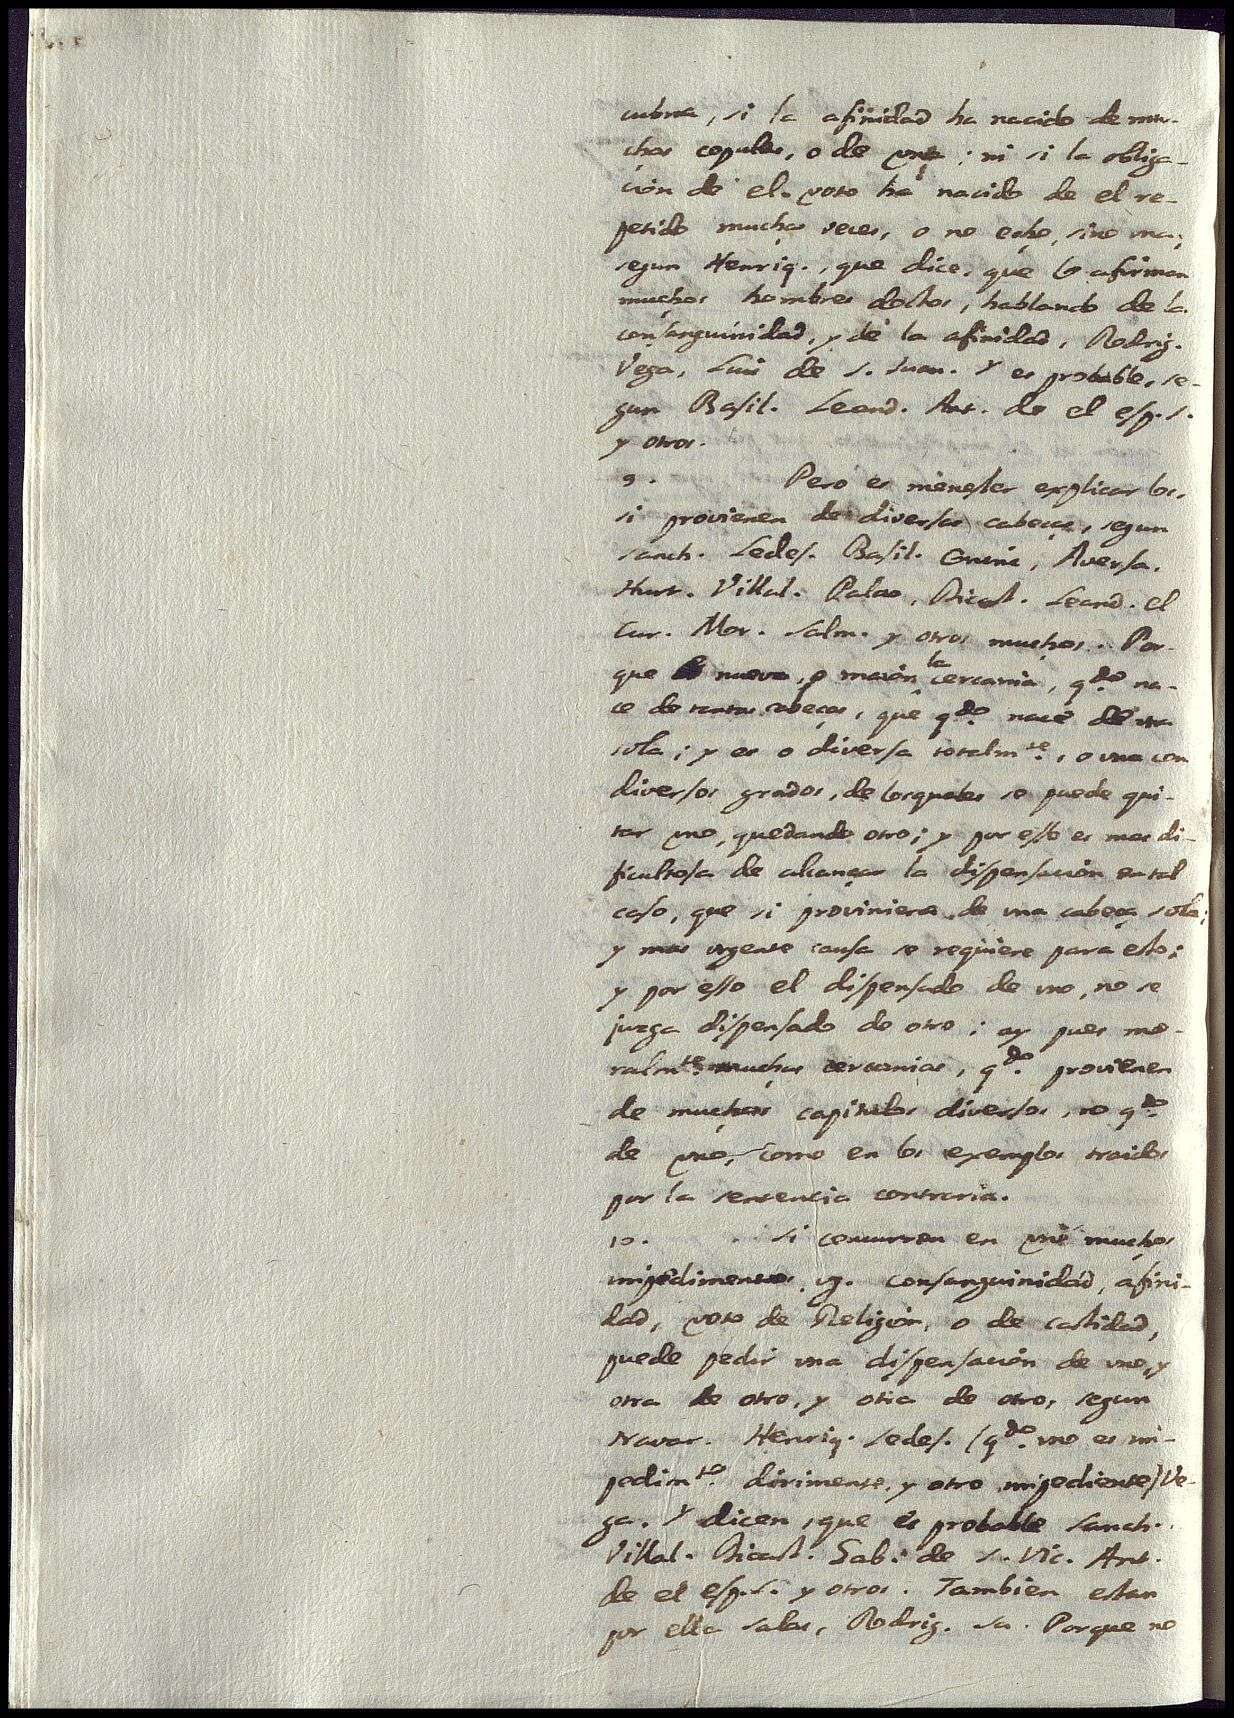 cubra, si la afinidad ha nacido de mu-
chas copulas, o de una; ni si la obliga-
ción de el voto ha nacido de el re-
petido muchas veces, o no echo, sino una,
segun Henriq., que dice, que lo afirman
muchos hombres doctos, hablando de la
consanguinidad, y de la afinidad, Rodrig.
Vega, Luis de S. Juan. Y es probable, se-
gun Basil. Leand. Ant. de el esp. S.
y otros.
9. Pero es menester explicarlos,
si provienen de diversas cabeças, segun
Sanch. Ledes. Basil. Aversa.
Hurt. Villal. Palao, Dicast. Leand. el
Cur. Mor. Salm. y otros muchos. Por-
que es nueva, o maior la cercania, q.do na-
ce de tantas cabeças, que q.do nace de una
sola; y es o diversa totalm.te, o una con
diversos grados, de los quales se puede qui-
tar uno, quedando otro; y por esso es mas di-
ficultosa de alcançar la dispensación en tal
caso, que si proviniera de una cabeça sola;
y mas urgente causa se requiere para esto;
y por esso el dispensado de uno, no se
juzga dispensado de otro; ay pues mo-
ralm.te muchas cercanias, q.do provienen
de muchos capitulos diversos, no q.do
de uno, como en los exemplos traidos
por la sentencia contraria.
10. Si concurren en uno muchos
impedimentos, vg. consanguinidad, afini-
dad, voto de Religión, o de castidad,
puede pedir una dispensación de uno, y
otra de otro, y otra de otro, segun
Navar. Henriq. Ledes. (q.do uno es im-
pedim.to dirimente, y otro impediente) Ve-
ga. Y dicen, que es probable Sanch.
Villal. Dicast. Gab. de S. Vic. Ant.
de el esp. S. y otros. Tambien estan
por ella Salas, Rodrig. Sa. Porque no